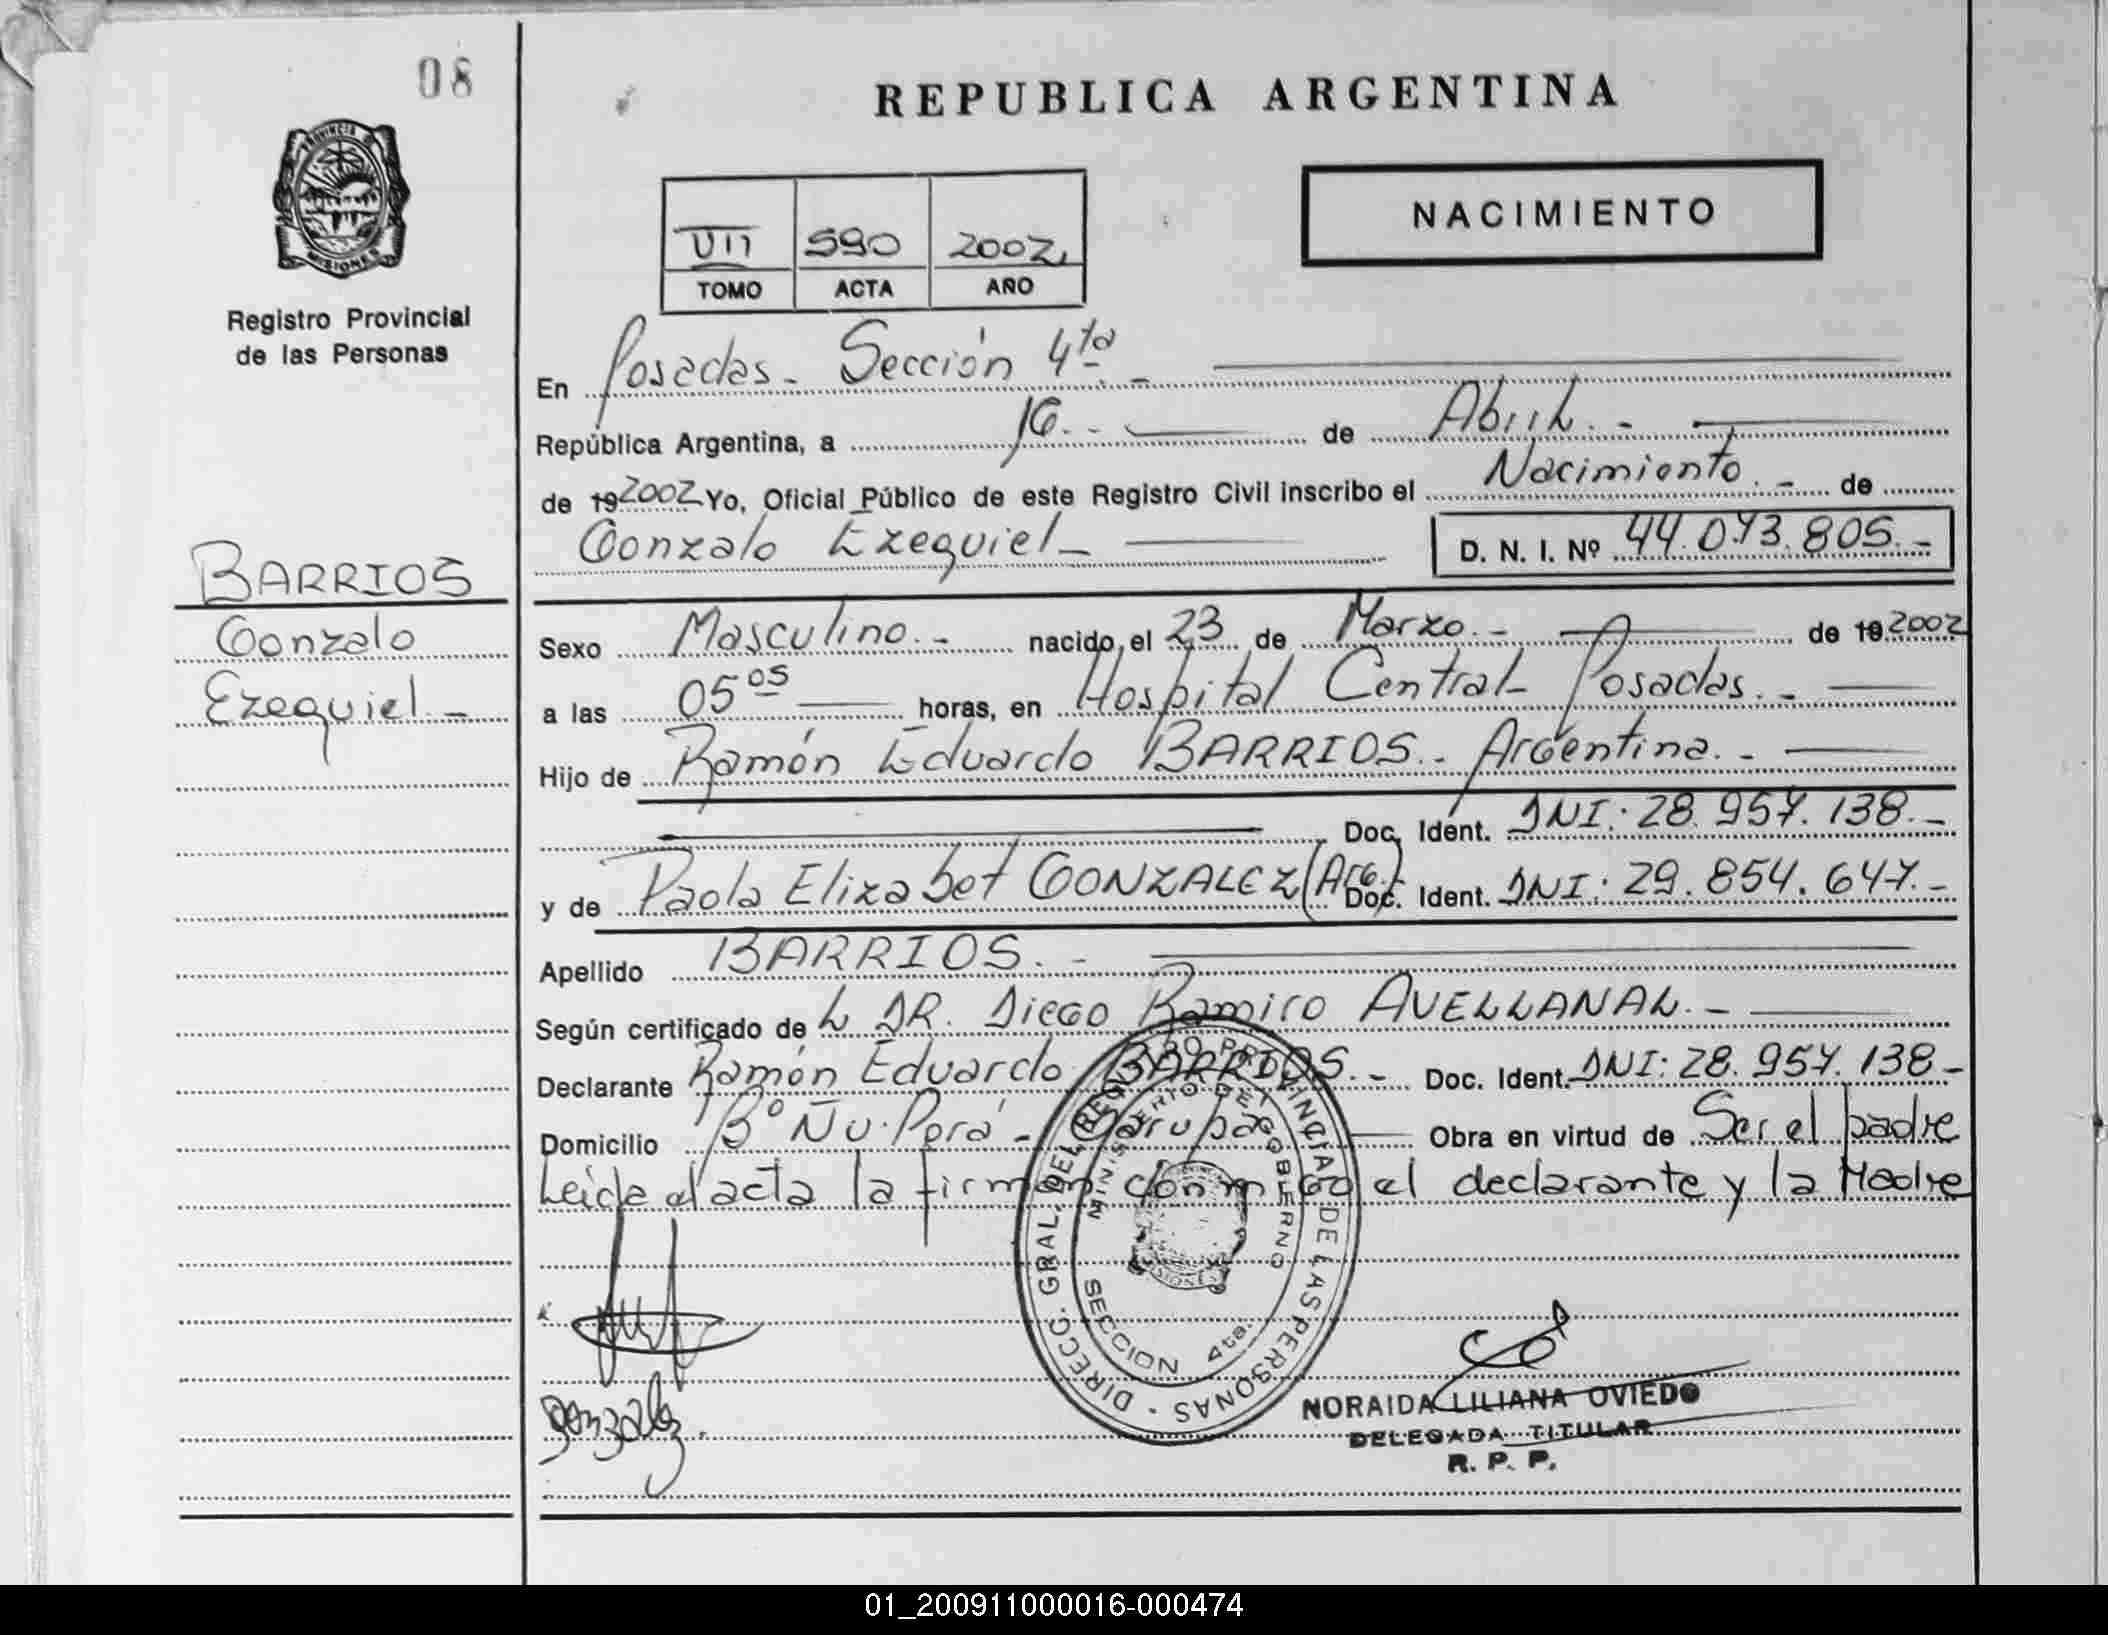 08
REPUBLICA ARGENTINA
PROVINCIA DE MISIONES
Registro Provincial
de las Personas
VII 590 2002
TOMO ACTA AÑO
NACIMIENTO
En Posadas - Sección 4ta. -
República Argentina, a 16. - de Abril. -
de 19 2002 Yo, Oficial Público de este Registro Civil inscribo el Nacimiento. - de
Gonzalo Ezequiel - D. N. I. Nº 44.073.805. -
BARRIOS
Gonzalo
Ezequiel. -
Sexo Masculino. - nacido el 23 de Marzo. - de 19 2002
a las 05 05 horas, en Hospital Central - Posadas. -
Hijo de Ramón Eduardo BARRIOS. - Argentina. -
Doc. Ident. DNI: 28.957.138. -
y de Paola Elizabet GONZALEZ (Arg.) Doc. Ident. DNI: 29.854.647. -
Apellido BARRIOS. -
Según certificado de L DR. Diego Ramiro AVELLANAL. -
Declarante Ramón Eduardo BARRIOS. - Doc. Ident. DNI: 28.957.138 -
Domicilio Bº Ñu-Porá - Garupá Obra en virtud de Ser el padre
Leida el acta la firman conmigo el declarante y la Madre
DIRECC. GRAL. DEL REGISTRO PROVINCIAL DE LAS PERSONAS
MINISTERIO DE GOBIERNO
MISIONES
SECCION 4ta.
gonzalez.
NORAIDA LILIANA OVIEDO
DELEGADA TITULAR
R. P. P.
01_200911000016-000474